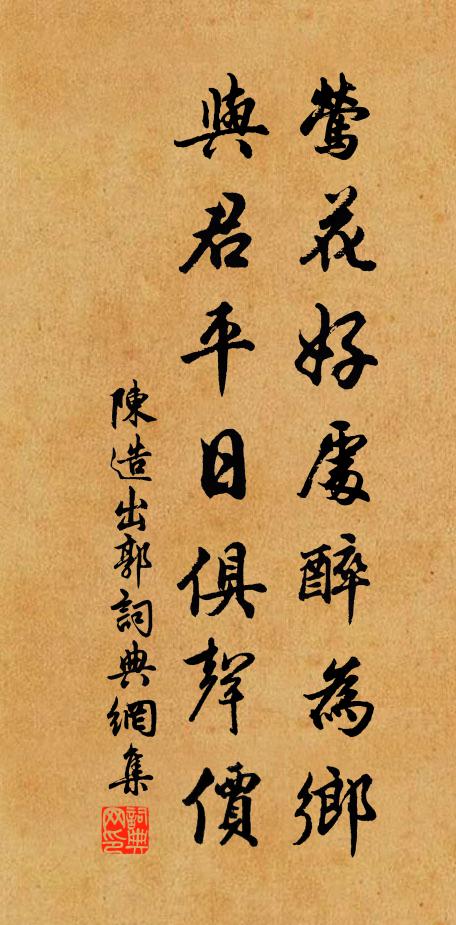 鶯花好處醉為鄉
與君平日俱聲價
陳造出郭詞典網集
詞典网印